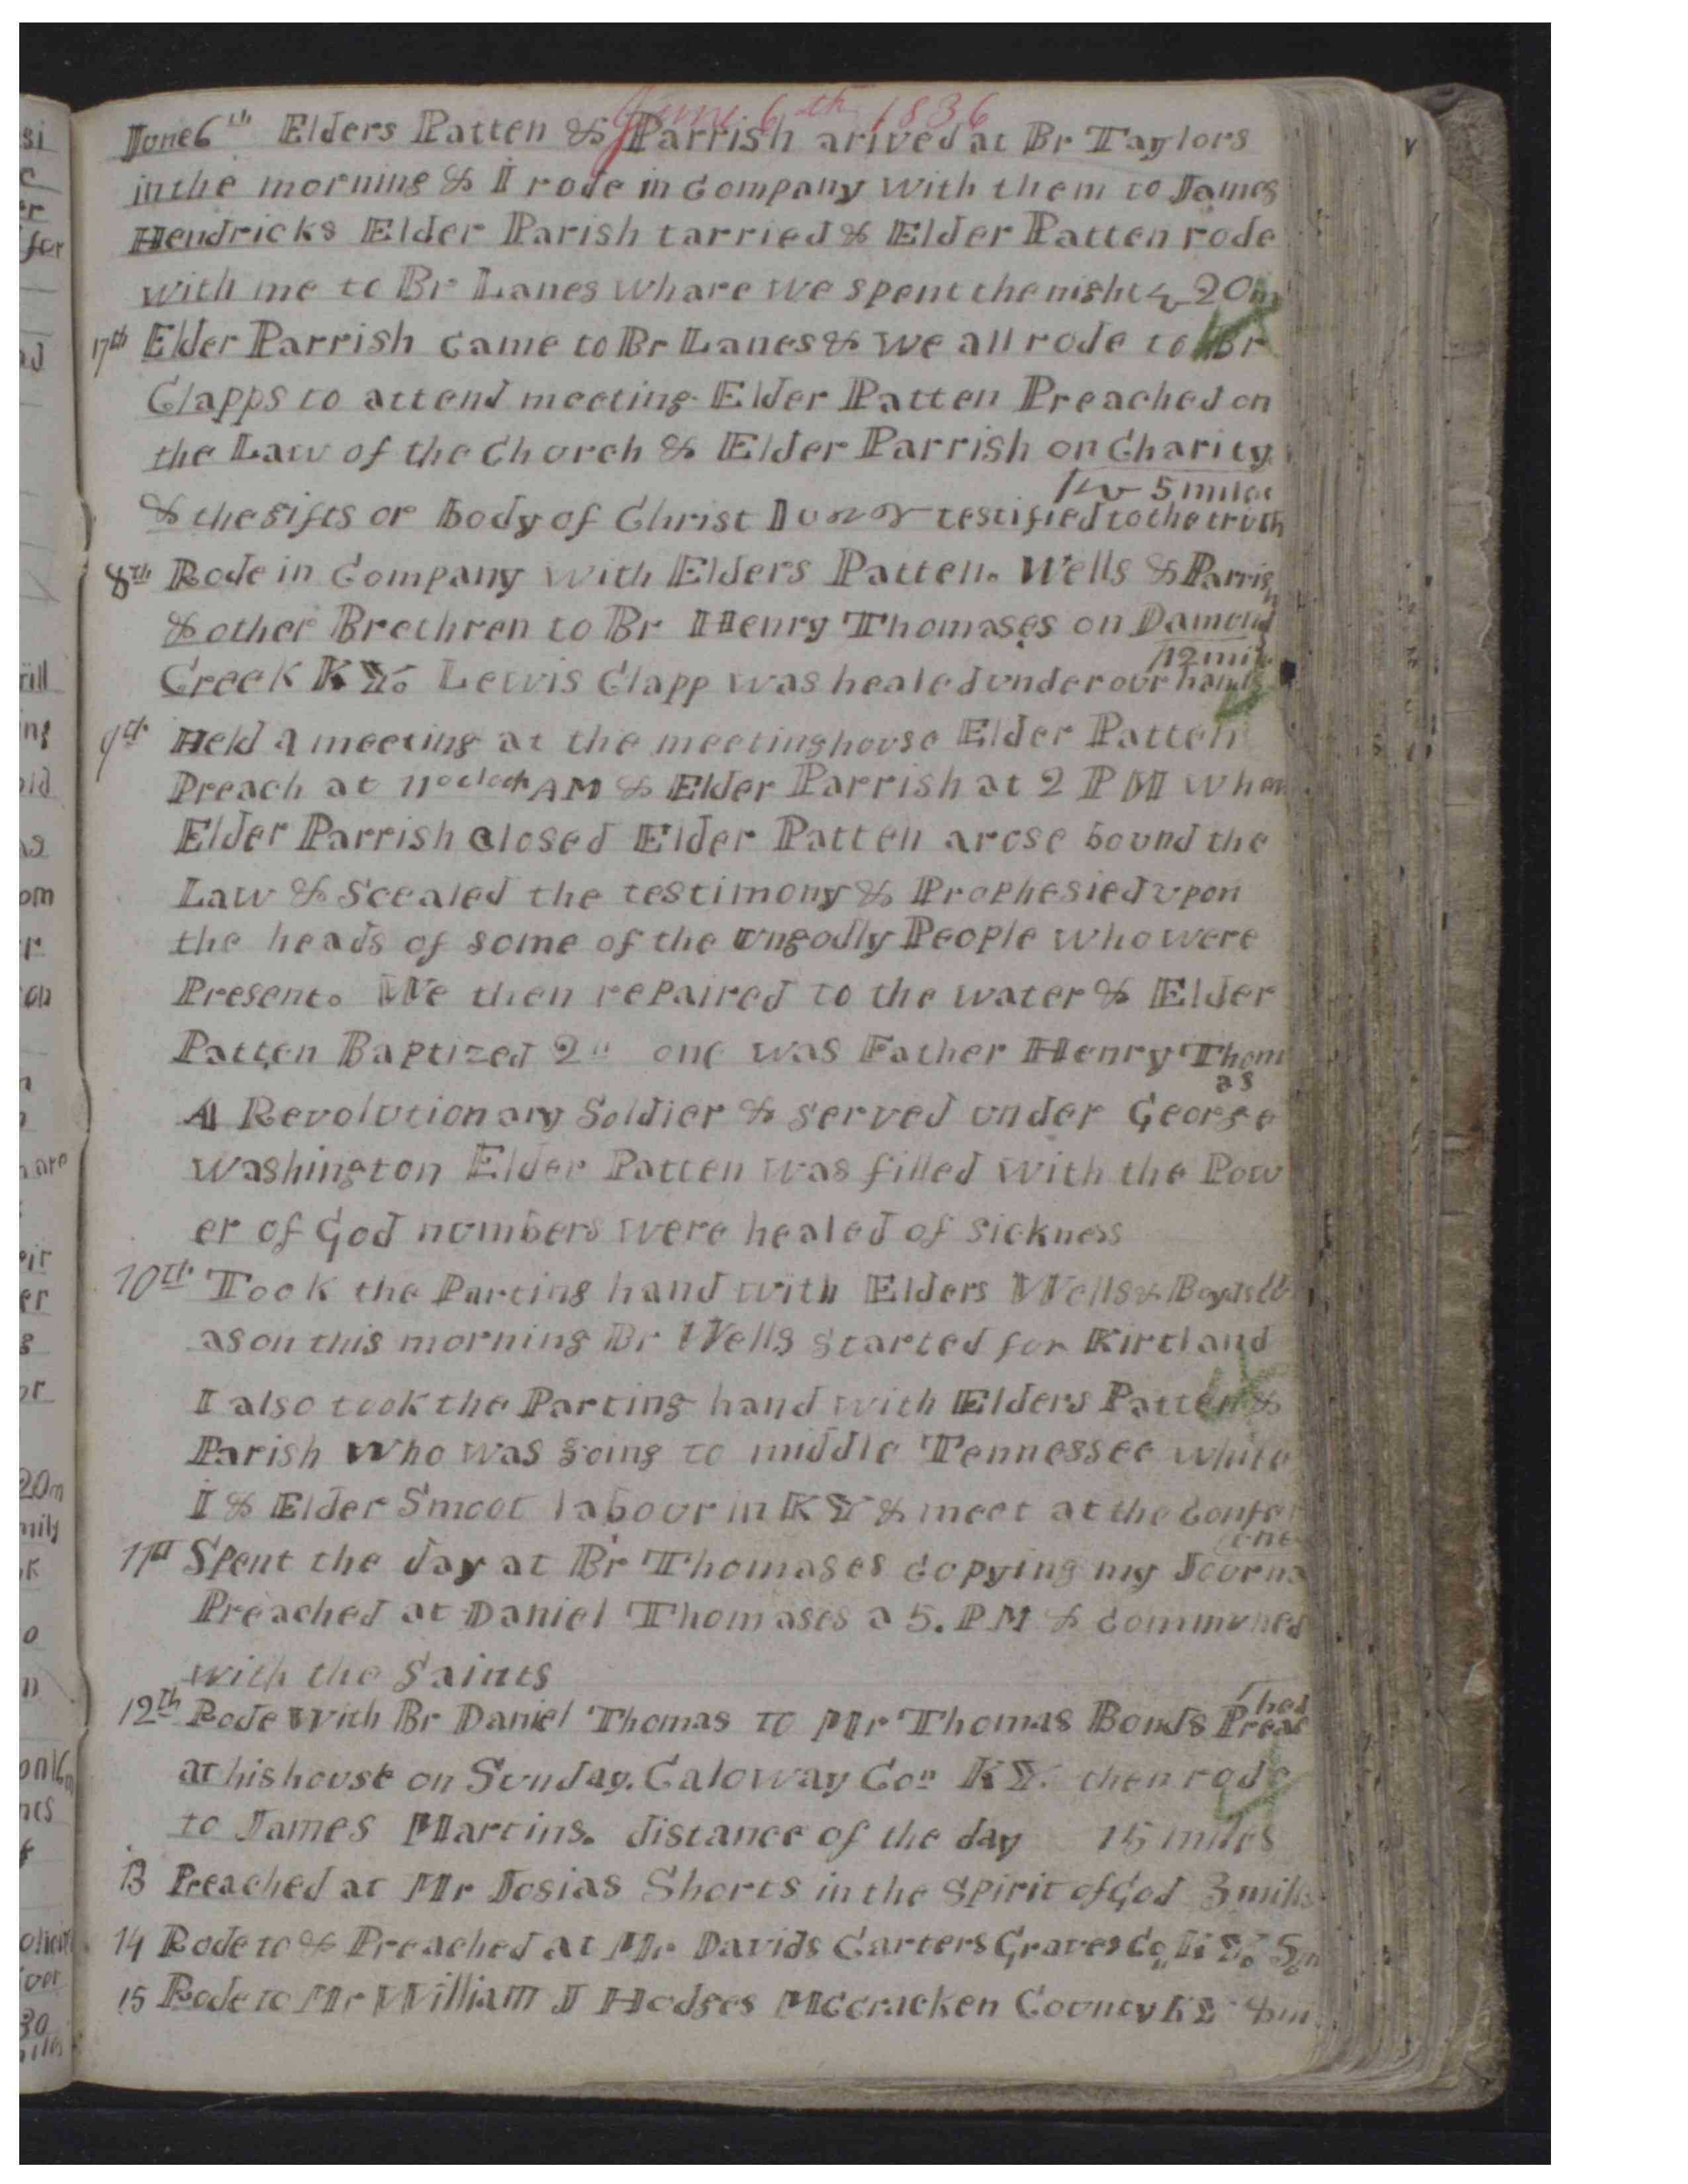 June 6th 1836
June 6th Elders Patten & Parrish arived at Br Taylors
in the morning & I rode in Company with them to James
Hendricks Elder Parish tarried & Elder Patten rode
with me to Br Lanes whare we spent the night 20m
7th Elder Parrish Came to Br Lanes & we all rode to Br
Clapps to attend meeting. Elder Patten Preached on
the Law of the Church & Elder Parrish on Charity
5 miles
& the gifts or body of Christ I testified to the truth
8th Rode in Company with Elders Patten. Wells & Parrish
& other Brethren to Br Henry Thomases on Damond
12 mil
Creek KY. Lewis Clapp was healed under our hands
9th Held A meeting at the meetinghouse Elder Patten
Preach at 11 oclock AM & Elder Parrish at 2 PM when
Elder Parrish Closed Elder Patten arose bound the
Law & Scealed the testimony & Prophesied upon
the heads of some of the ungodly People who were
Present. We then repaired to the water & Elder
Patten Baptized 2 one was Father Henry Thom
as
A Revolutionary Soldier & served under George
Washington Elder Patten was filled with the Pow
er of God numbers were healed of sickness
10th Took the Parting hand with Elders Wells &
as on this morning Br Wells started for Kirtland
I also took the Parting hand with Elders Patten &
Parish Who was going to middle Tennessee while
I & Elder Smoot labour in KY & meet at the Confer
ence
11th Spent the day at Br Thomases Copying my Journa
Preached at Daniel Thomases a 5. PM & Communed
with the Saints
12th Rode With Br Daniel Thomas to Mr Thomas Bonds Preac
hed
at his house on Sunday. Caloway Co" KY. then rode
to James Martins. distance of the day 15 miles
13 Preached at Mr Josias Shorts in the Spirit of God 3 miles
14 Rode to & Preached at Mr Davids Carters Graves Co KY. 5m
15 Rode to Mr William J Hodges McCracken County KY 8m